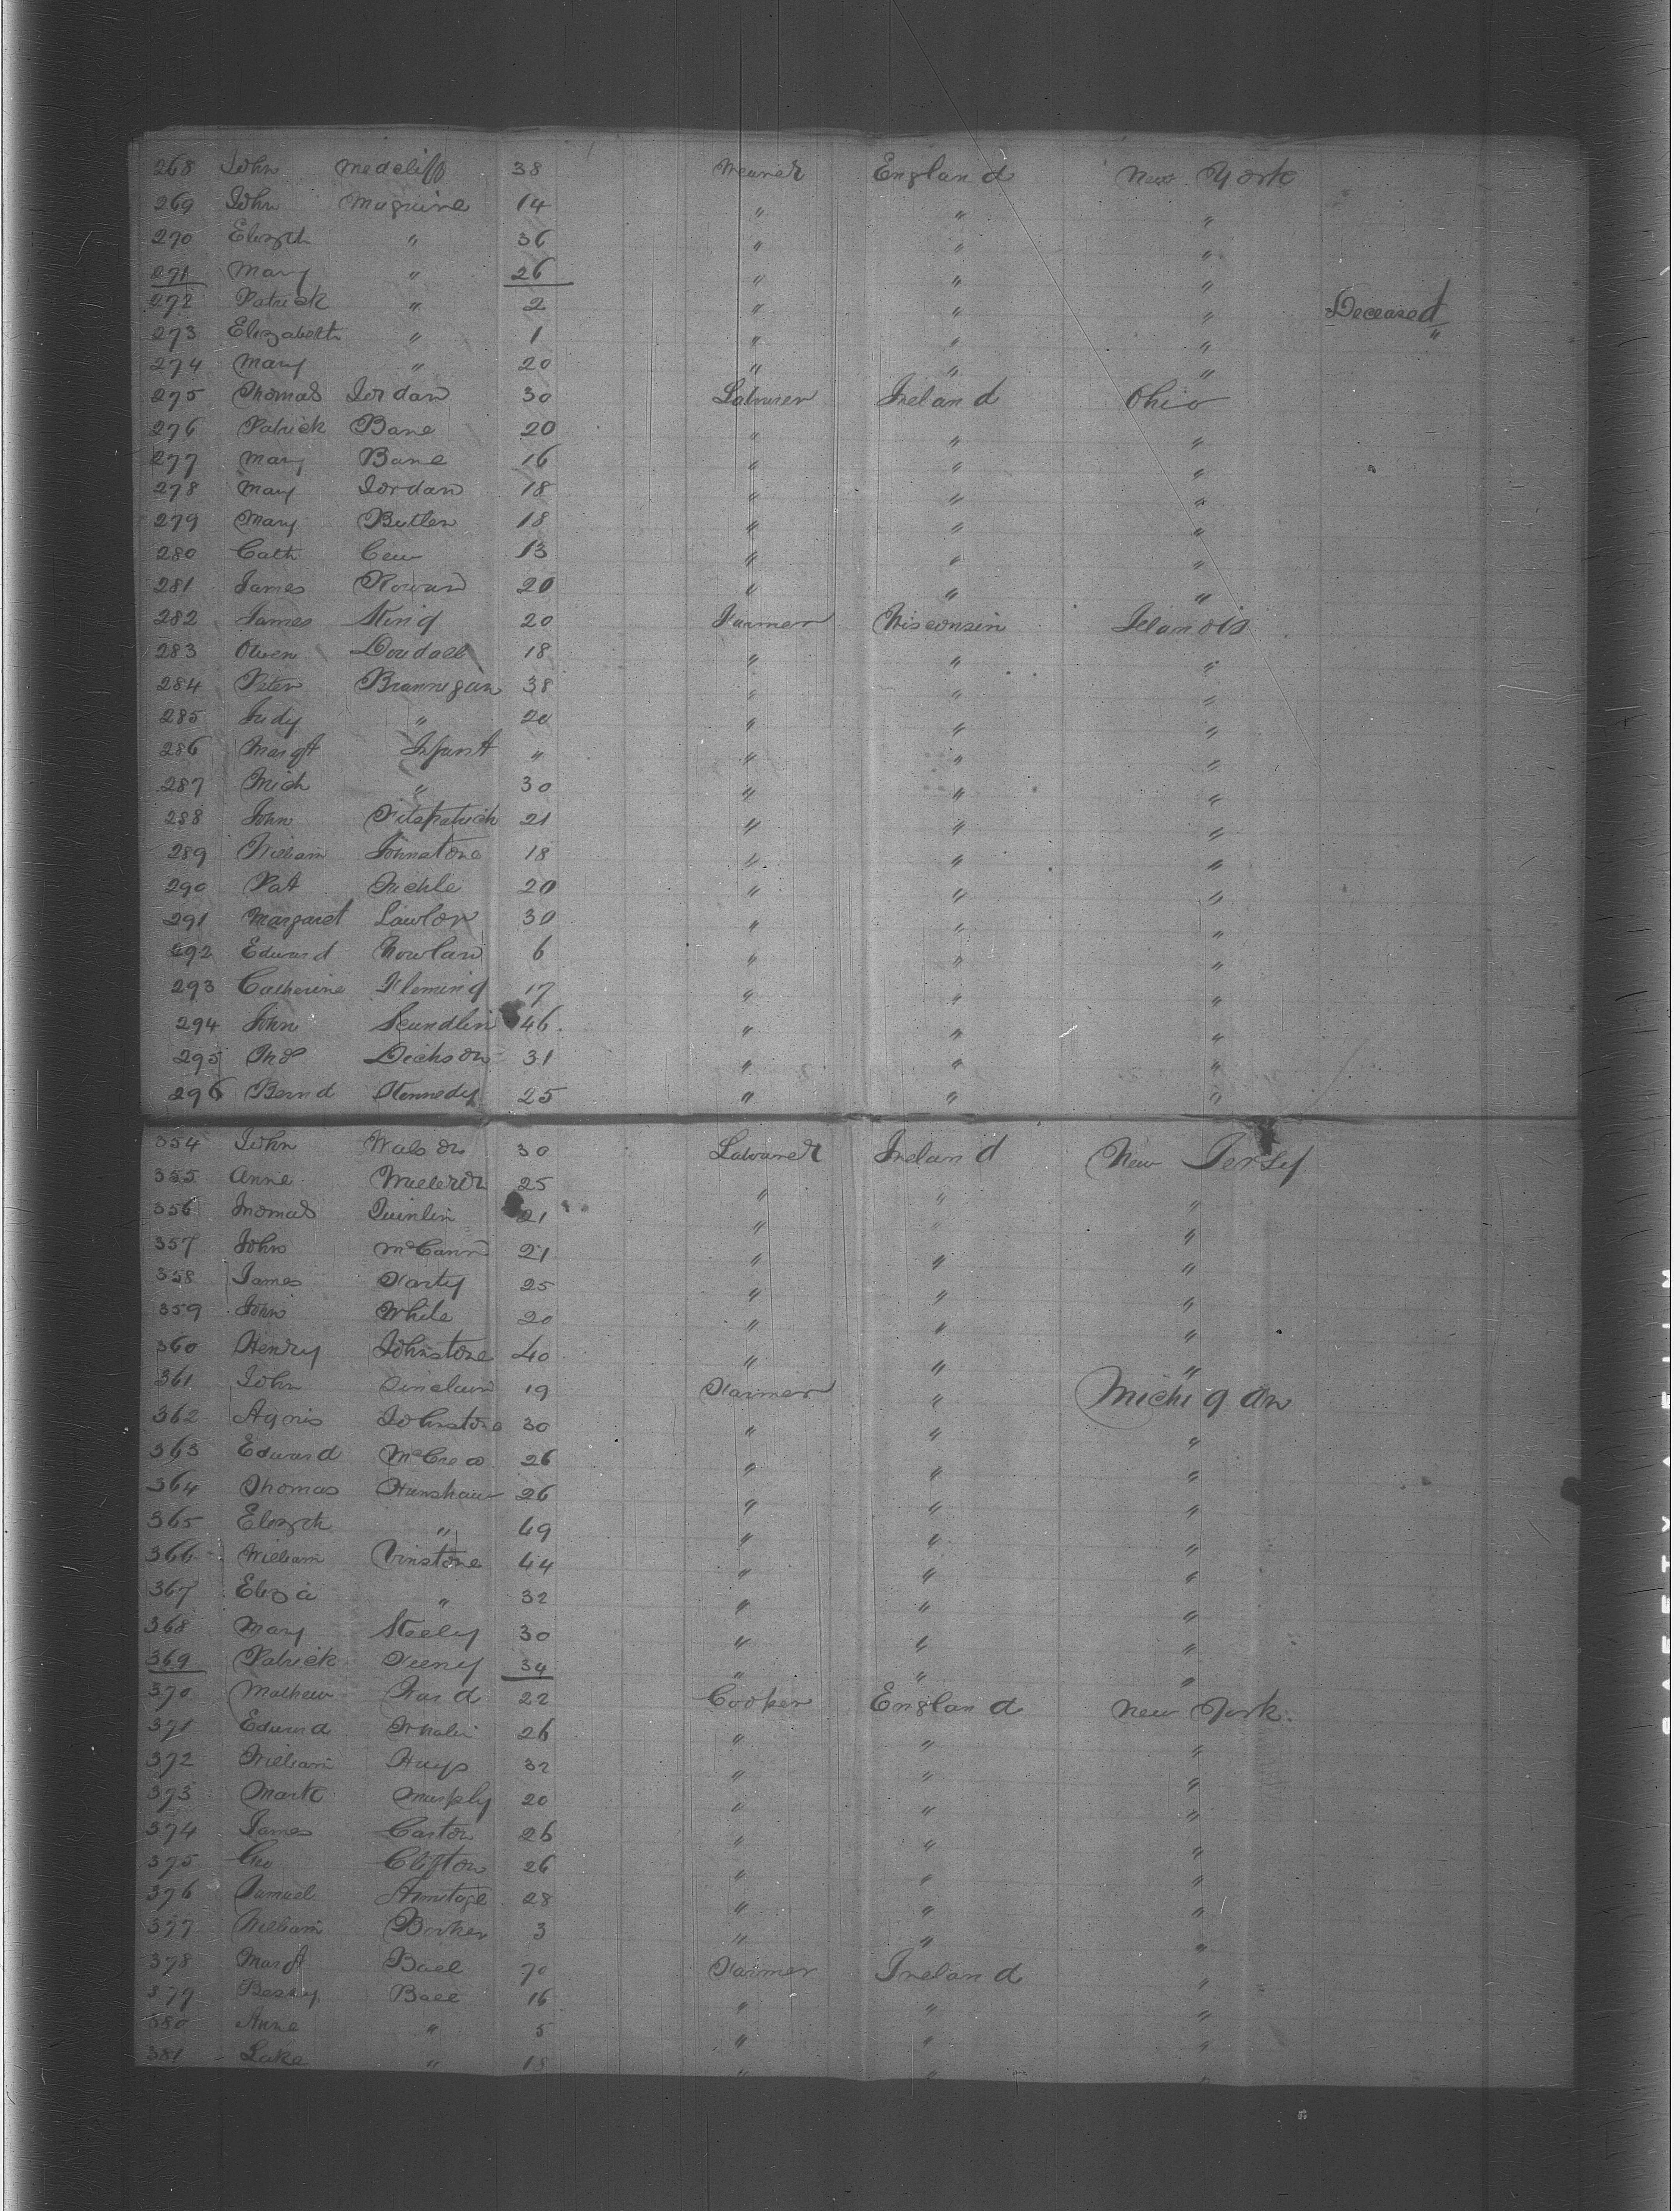 268 John Medcliff 38 Weaver England New York
269 John Maguire 14 " " "
270 Elizgth " 36 " " "
271 Mary " 26 " " "
272 Patrick " 2 " " " Deceased
273 Elizabeth " 1 " " " "
274 Mary " 20 " " "
275 Thomas Jordan 30 Labourer Ireland Ohio
276 Patrick Bane 20 " " "
277 Mary Bane 16 " " "
278 Mary Jordan 18 " " "
279 Mary Butler 18 " " "
280 Cath 13 " " "
281 James Rowan 20 " " "
282 James King 20 Farmer Wisconsin Ilanois
283 Owen Doudall 18 " " "
284 Peter Brannegan 38 " " "
285 Judy " 20 " " "
286 Margt Infant " " " "
287 Mich " 30 " " "
288 John Fitspatrick 21 " " "
289 William Johnstone 18 " " "
290 Pat 20 " " "
291 Margaret Lawlor 30 " " "
292 Edward Nowlan 6 " " "
293 Catherine Fleming 17 " " "
294 John Scundlin 46 " " "
295 Dickson 31 " " "
296 Bernd Kennedy 25 " " "
354 John 30 Labourer Ireland New Jersey
355 Anne 25 " " "
356 Thomas Quinlin 21 " " "
357 John McCann 21 " " "
358 James Farty 25 " " "
359 John White 20 " " "
360 Henry Johnstone 40 " " "
361 John Sinclair 19 Farmer " Michigan
362 Agnis Johnstone 30 " " "
363 Edward McCrea 26 " " "
364 Thomas Hunshaw 26 " " "
365 Elizgth " 49 " " "
366 William Vinstone 44 " " "
367 Eliza " 32 " " "
368 Mary Steely 30 " " "
369 Patrick Feeny 34 " " "
370 Mathew Ward 22 Cooper England New York
371 Edward Whalin 26 " " "
372 William Hays 32 " " "
373 Mark Murphy 20 " " "
374 James Caston 26 " " "
375 Geo Clifton 26 " " "
376 Samuel Armitage 28 " " "
377 William Booker 3 " " "
378 Margt Ball 70 Farmer Ireland "
379 Bessy Ball 16 " " "
380 Anne " 5 " " "
381 Luke " 18 " " "